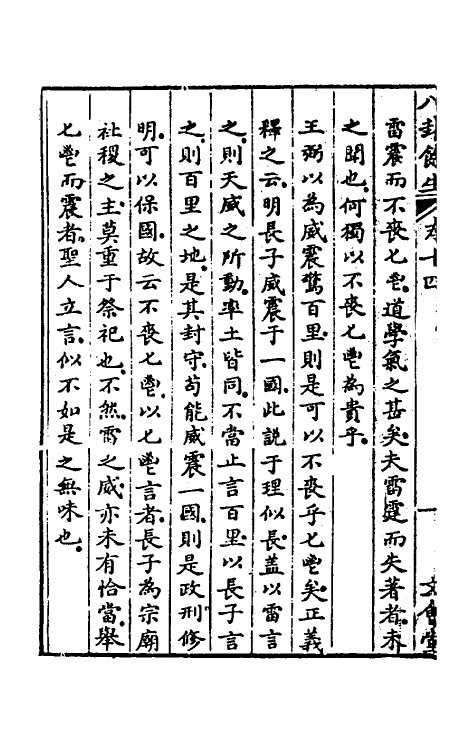 雷震而不喪匕鬯道學氣之甚矣夫雷霆而失著者未
之聞也何獨以不喪匕鬯為貴乎
王弼以為威震驚百里則是可以不喪乎匕鬯矣正義
釋之云明長子威震于一國此説于理似長蓋以雷言
之則天威之所動率土皆同不當止言百里以長子言
之則百里之地是其封守苟能威震一國則是政刑修
明可以保國故云不喪匕鬯以匕鬯言者長子為宗廟
社稷之主莫重于祭祀也不然雷之威亦未有恰當舉
匕鬯而震者聖人立言似不如是之無味也
卷十四